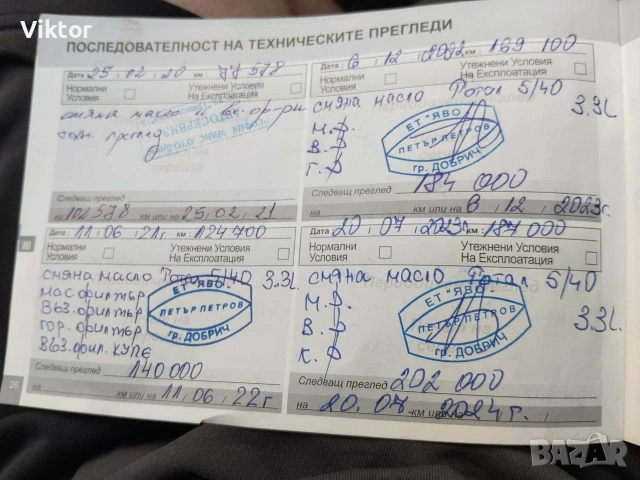 Viktor
ПОСЛЕДОВАТЕЛНОСТ НА ТЕХНИЧЕСКИТЕ ПРЕГЛЕДИ
Дата: 25, 02, 20 км: 77 578
Нормални Условия
Утежнени Условия На Експлоатация
смяна масло и
преглед
Следващ преглед
на 102578 км или на 25, 02, 21
Дата: 6, 12, 2022 км: 169 100
Нормални Условия
Утежнени Условия На Експлоатация
смяна масло Тотал 5/40
3.3L
М.Ф
В.Ф
Г.Ф
ЕТ "ЯВО"
ПЕТЪР ПЕТРОВ
гр. ДОБРИЧ
Следващ преглед 184 000
на км или на 6, 12, 2023г.
III
Дата: 11, 06, 21г км: 124700
Нормални Условия
Утежнени Условия На Експлоатация
смяна масло Тотал 5/40 3.3L
мас.филтър
въз.филтър
гор. филтър
въз.фил. купе
ЕТ "ЯВО"
ПЕТЪР ПЕТРОВ
гр. ДОБРИЧ
Следващ преглед 140000
на км или на 11, 06, 22г
Дата: 20, 07, 2023г. км: 187 000
Нормални Условия
Утежнени Условия На Експлоатация
смяна масло Тотал 5/40
3.3L
М.Ф
В.Ф
К.Ф
ЕТ "ЯВО"
ПЕТЪР ПЕТРОВ
гр. ДОБРИЧ
Следващ преглед 202 000
на км или на 20.07.2024г.
26
BAZAR